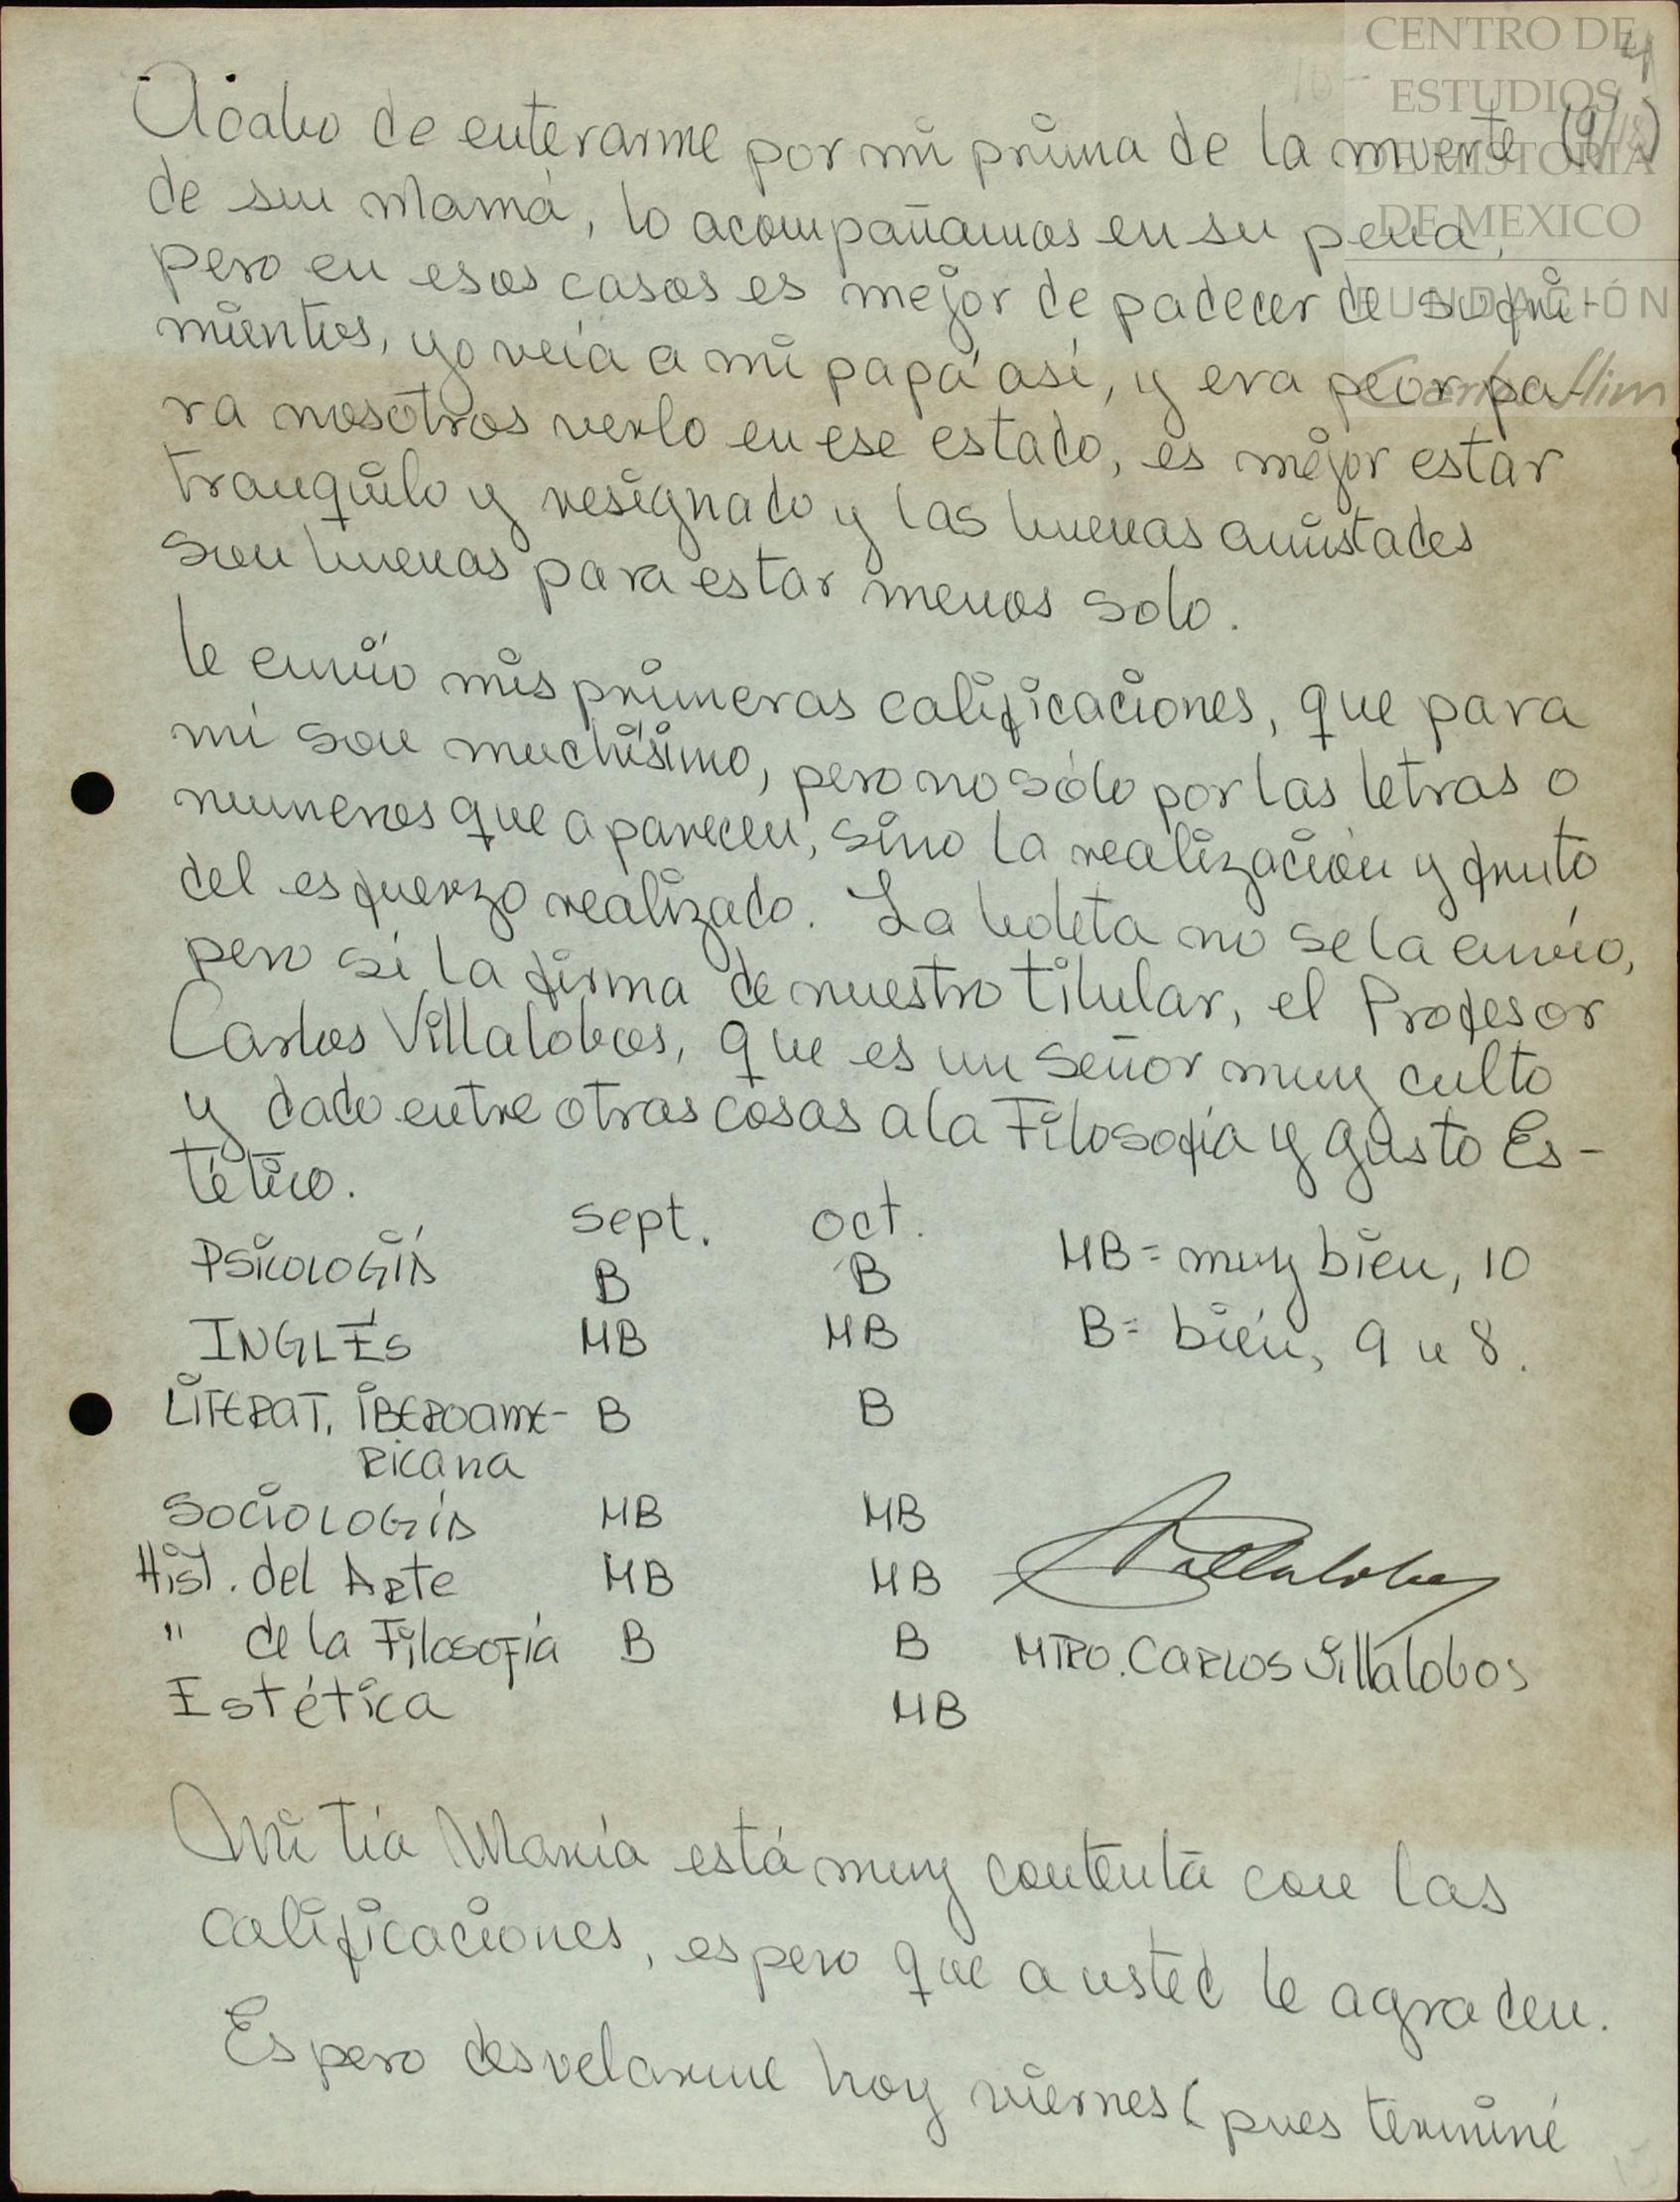 CENTRO DE
ESTUDIOS
DE HISTORIA
DE MEXICO
FUNDACIÓN
Carlos Slim
Acabo de enterarme por mi prima de la muerte
de su mamá, lo acompañamos en su pena,
pero en esos casos es mejor de padecer de sufri-
mientos, yo veía a mi papá así, y era peor pa-
ra nosotros verlo en ese estado, es mejor estar
tranquilo y resignado y las buenas amistades
son buenas para estar menos solo.
le envío mis primeras calificaciones, que para
mí son muchísimo, pero no sólo por las letras o
numeros que aparecen, sino la realización y fruto
del esfuerzo realizado. La boleta no se la envío,
pero sí la firma de nuestro titular, el Profesor
Carlos Villalobos, que es un señor muy culto
y dado entre otras cosas a la Filosofía y gusto Es-
tético.
Sept. Oct.
PSICOLOGÍA B B MB = muy bien, 10
INGLÉS MB MB B = bién, 9 u 8.
LITERAT. IBEROAME- B B
RICANA
SOCIOLOGÍA MB MB
Hist. del Arte MB MB Villalobos
" de la Filosofía B B MTRO. CARLOS Villalobos
Estética MB
Mi tía María está muy contenta con las
calificaciones, espero que a usted le agraden.
Espero desvelarme hoy viernes (pues terminé